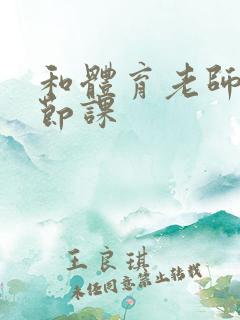 和體育老師
節課
王良琪
未经同意禁止转载